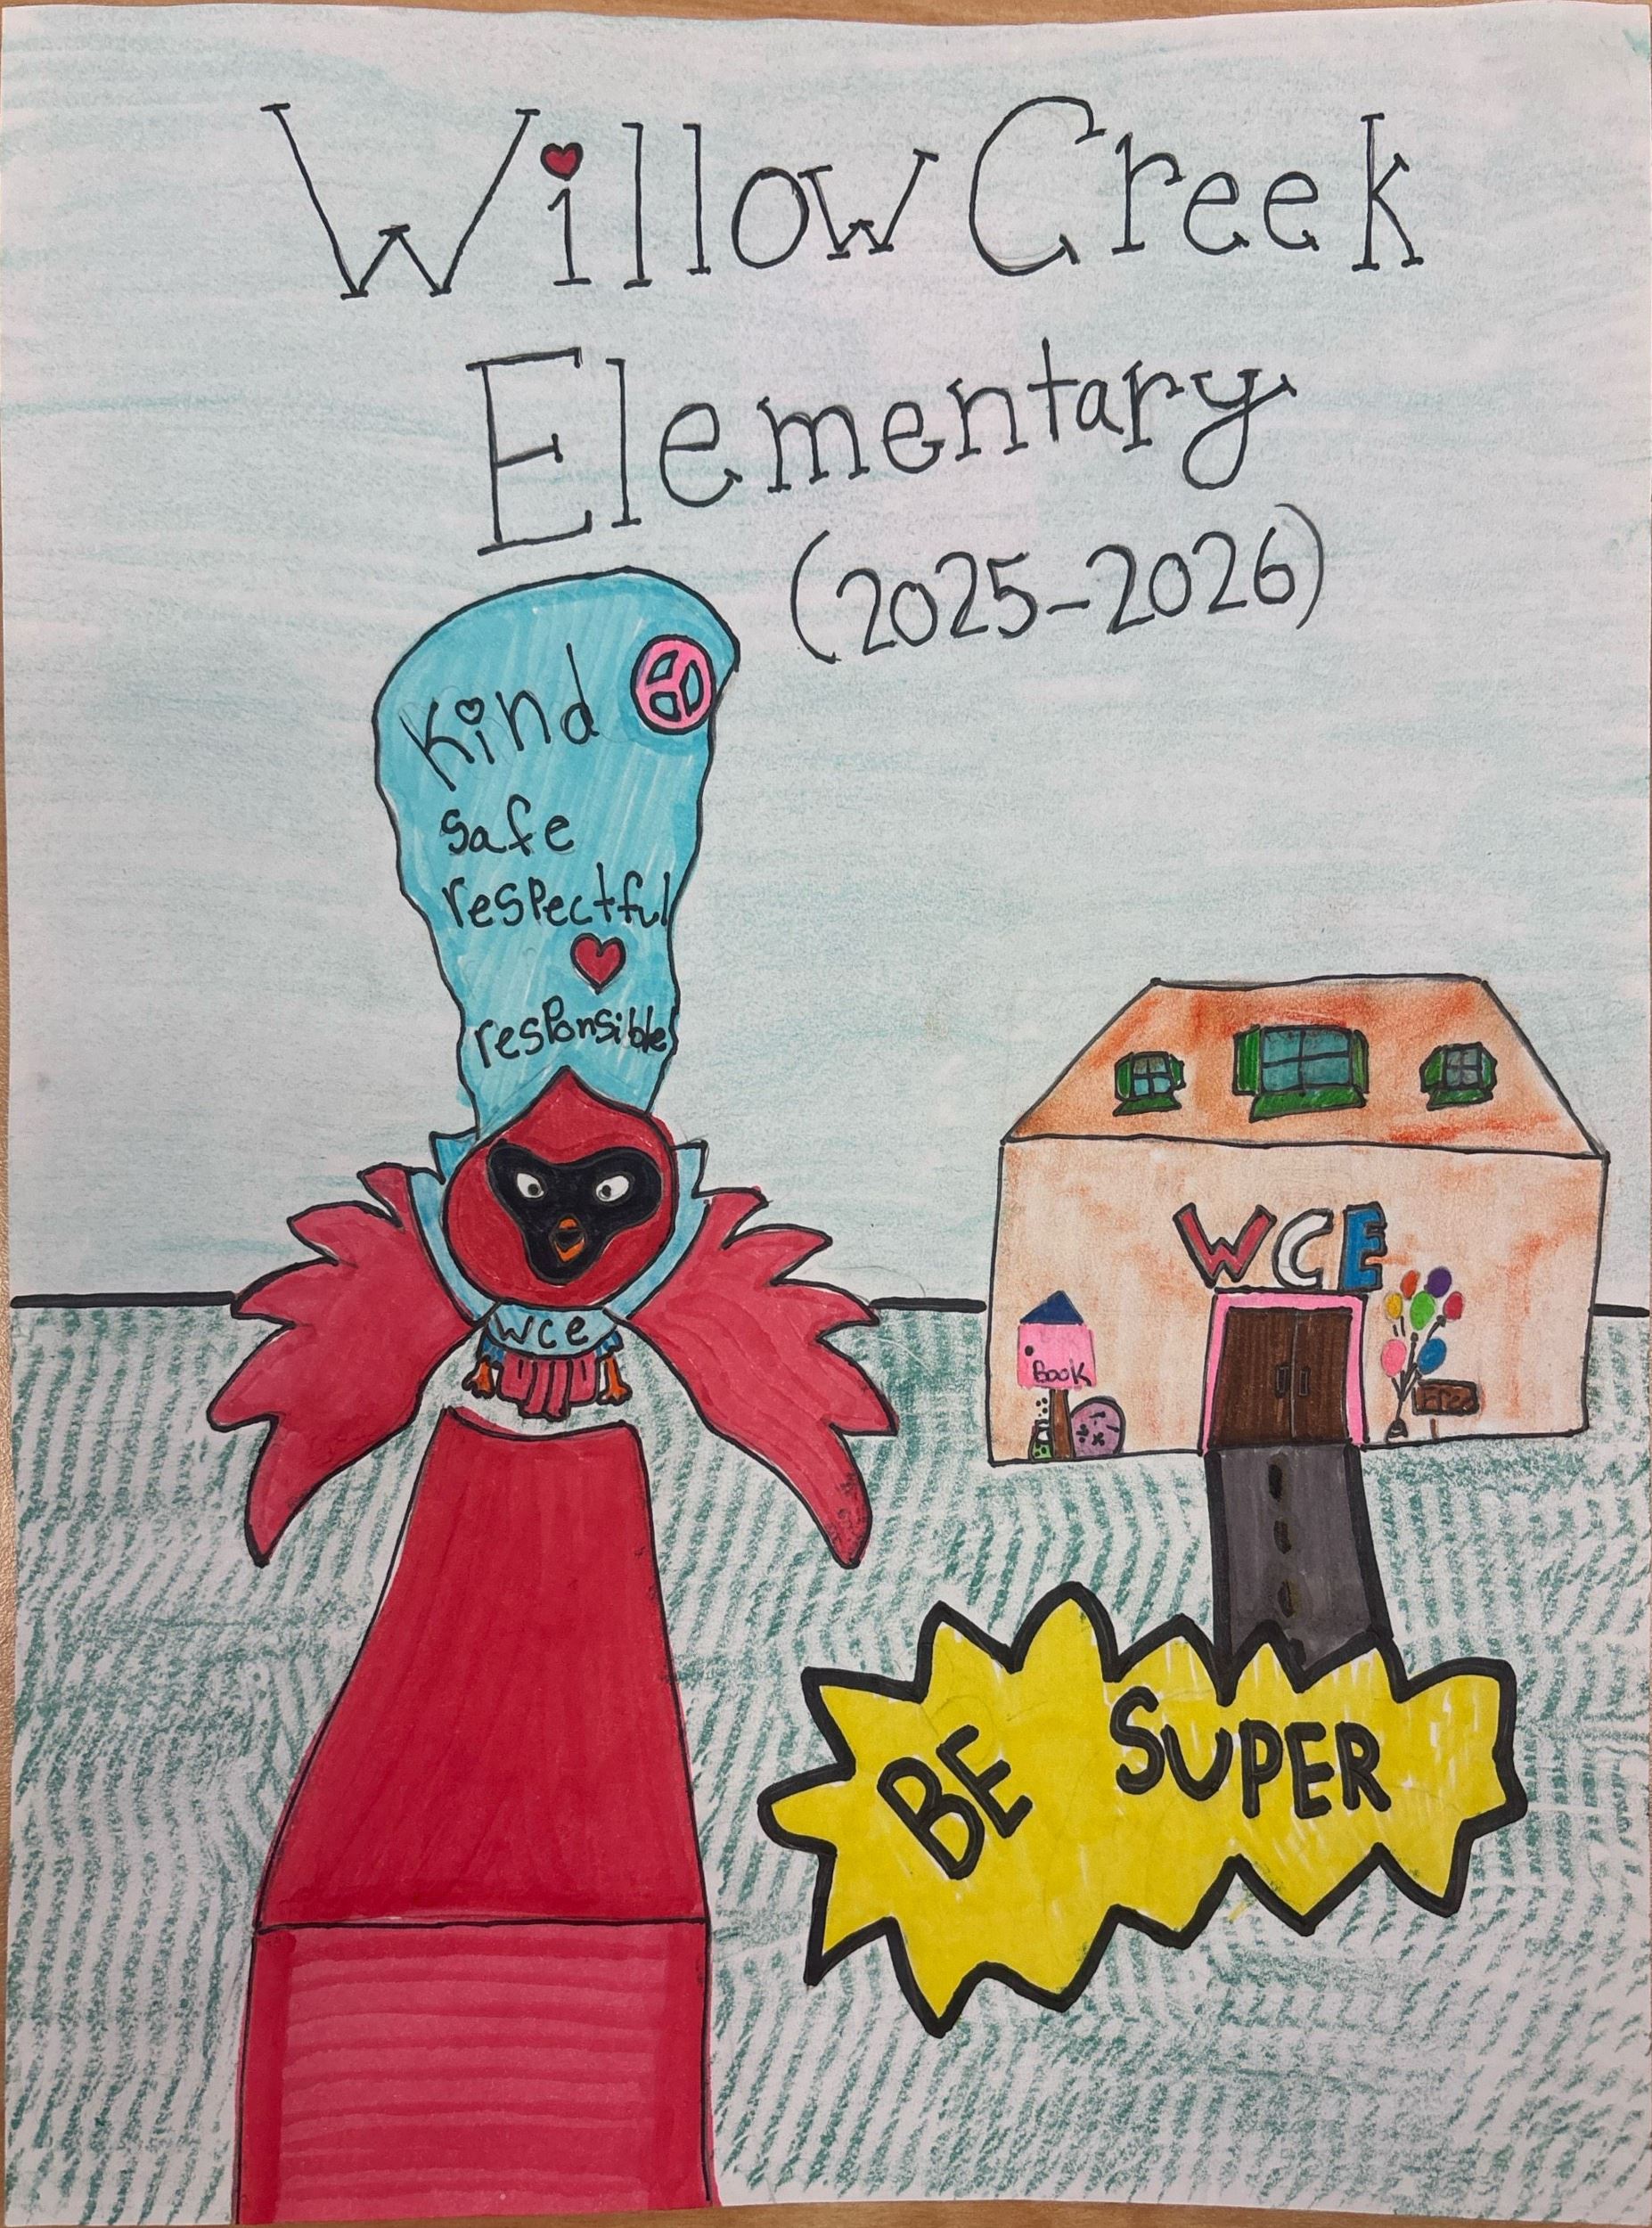 Willow Creek
Elementary
(2025-2026)
Kind
safe
respectful
responsible
wce
WCE
Book
Free
BE SUPER